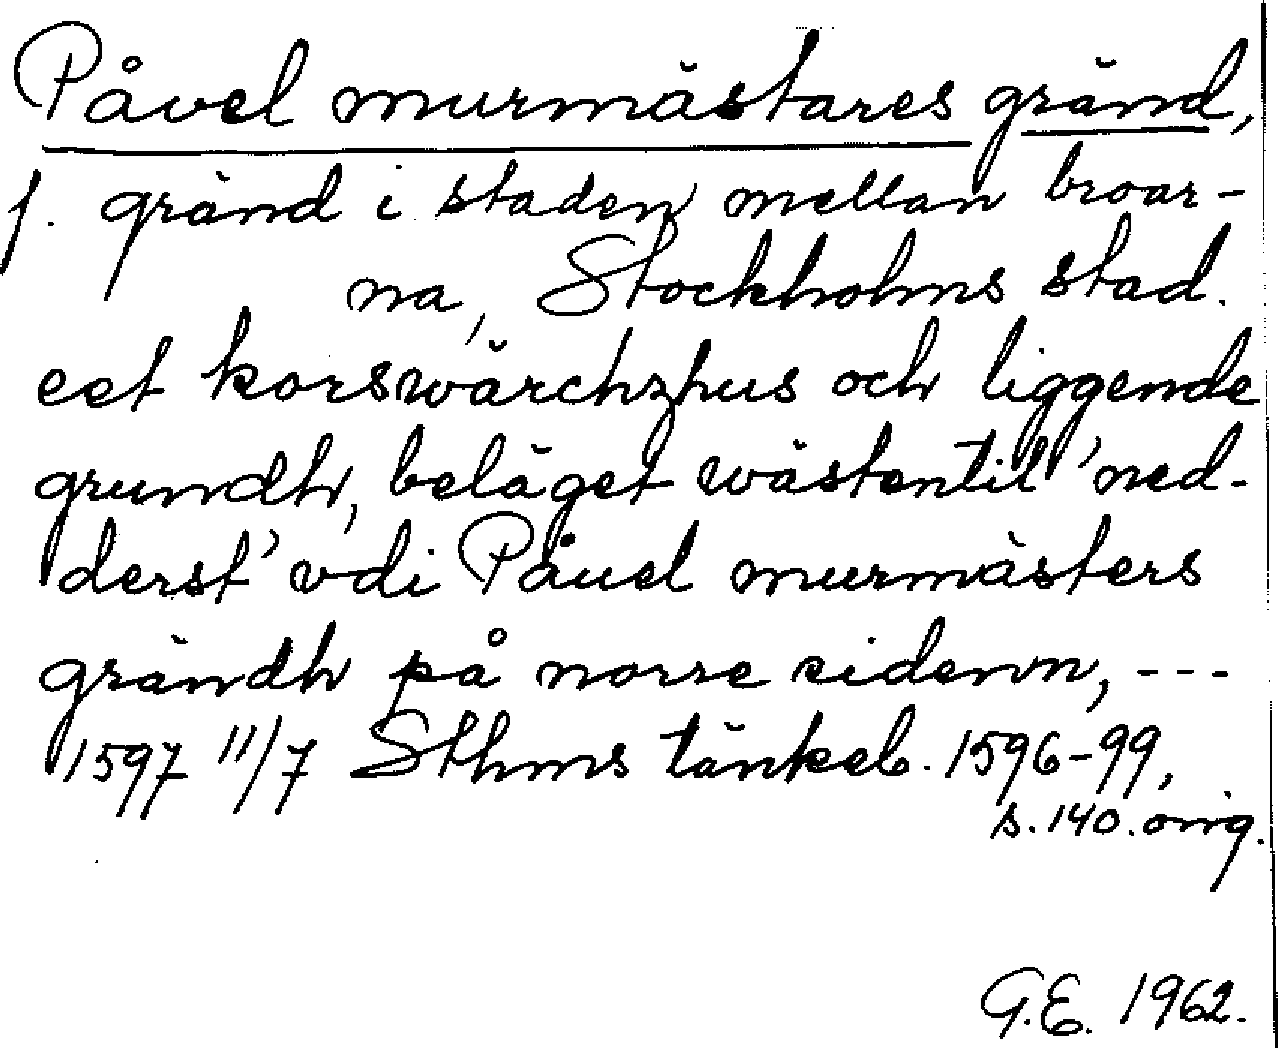 Påvel murmästares gränd,
f. gränd i staden mellan broar-
na, Stockholms stad.
eet korswärchzhus och liggende
grundh, beläget wästentil 'ned-
derst' vdi Påuel murmästers
grändh på norre sidenn, ---
1597 11/7 Sthms tänkeb. 1596-99,
s. 140. orig.
G.E. 1962.